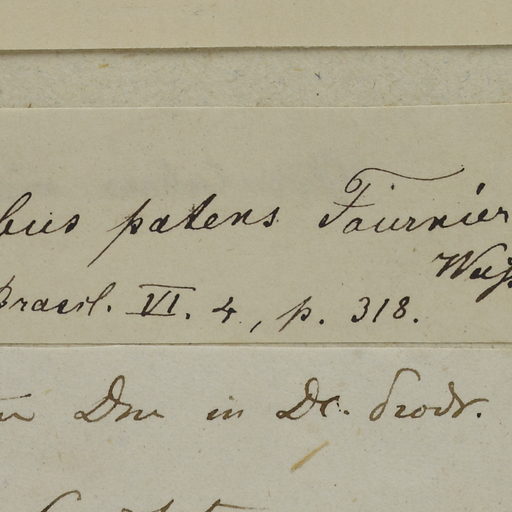 bus patens Fournier
Brasil. VI. 4, p. 318.
Dne in DC. Prodr.